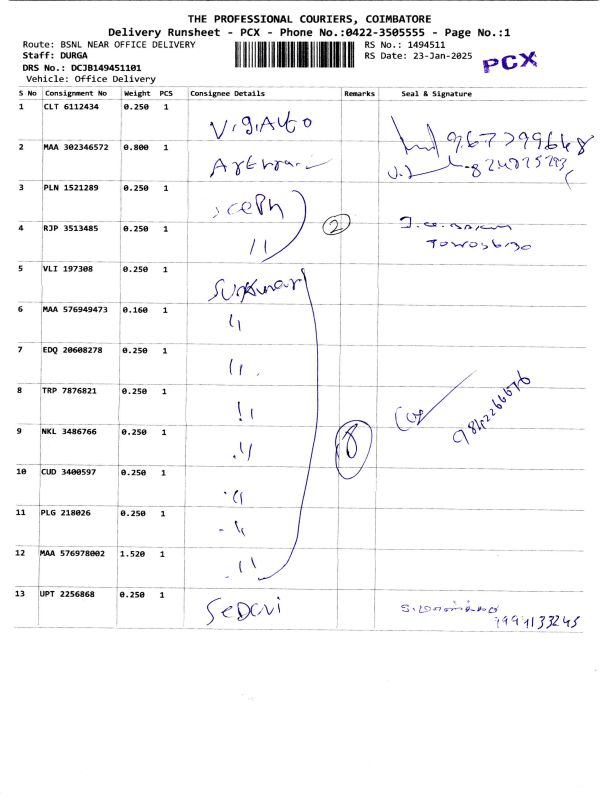 THE PROFESSIONAL COURIERS, COIMBATORE
Delivery Runsheet - PCX - Phone No.:0422-3505555 - Page No.:1
Route: BSNL NEAR OFFICE DELIVERY
RS No.: 1494511
Staff: DURGA
RS Date: 23-Jan-2025
PCX
DRS No.: DCJB149451101
Vehicle: Office Delivery
S No Consignment No Weight PCS Consignee Details Remarks Seal & Signature
1 CLT 6112434 0.250 1
2 MAA 302346572 0.800 1
3 PLN 1521289 0.250 1
4 RJP 3513485 0.250 1 11 2
5 VLI 197308 0.250 1
6 MAA 576949473 0.160 1 11
7 EDQ 20608278 0.250 1 11
8 TRP 7876821 0.250 1 11
9 NKL 3486766 0.250 1 11 8
10 CUD 3400597 0.250 1 11
11 PLG 218026 0.250 1 11
12 MAA 576978002 1.520 1 11
13 UPT 2256868 0.250 1